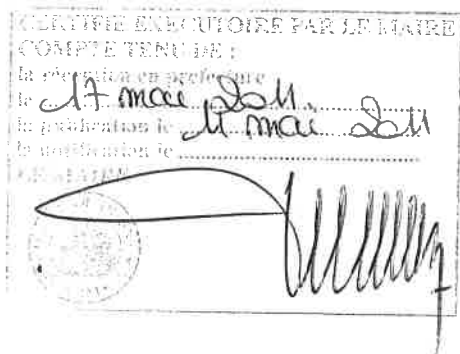 CERTIFIE EXECUTOIRE PAR LE MAIRE
COMPTE TENU DE :
la réception en préfecture
le 17 mai 2011
la publication le 11 mai 2011
la notification le
LE MAIRE